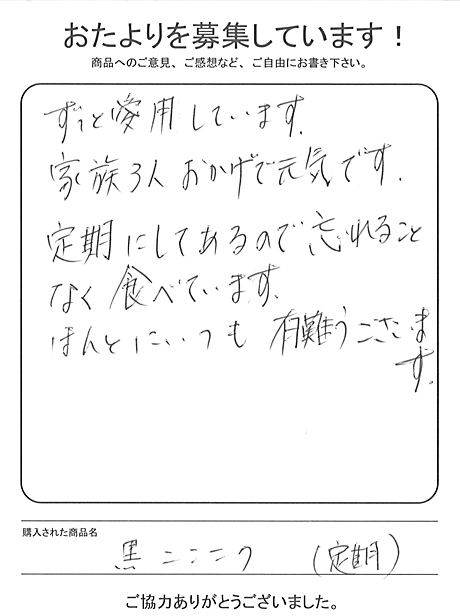 おたよりを募集しています！
商品へのご意見、ご感想など、ご自由にお書き下さい。
ずっと愛用しています.
家族3人 おかげで元気です.
定期にしてあるので忘れること
なく食べています.
ほんとにいつも 有難うございま
す.
購入された商品名
黒ニンニク (定期)
ご協力ありがとうございました。